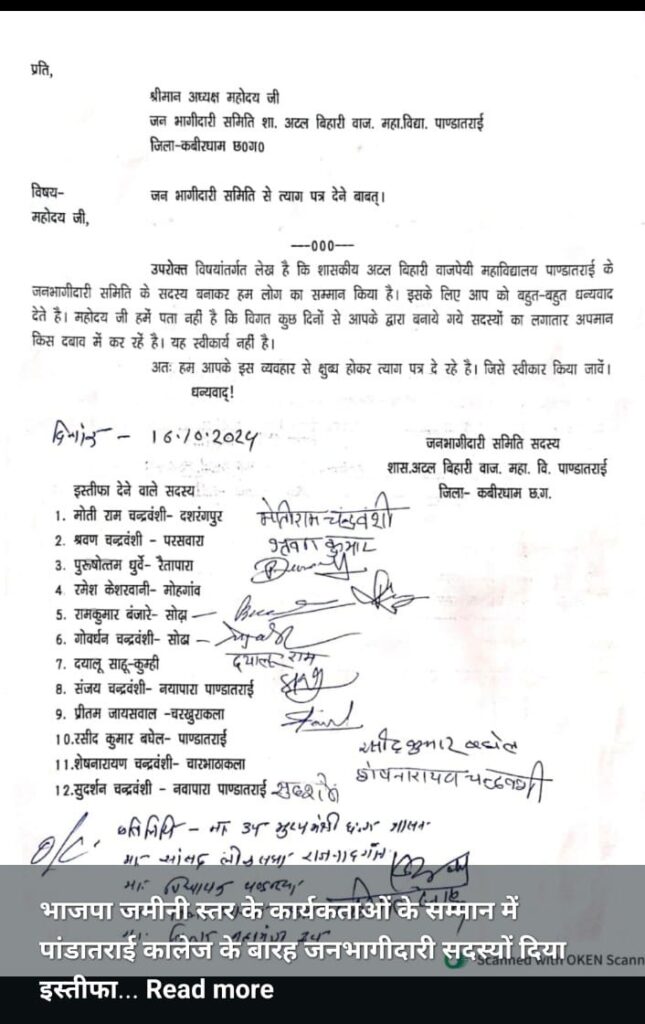 प्रति,
श्रीमान अध्यक्ष महोदय जी
जन भागीदारी समिति शा. अटल बिहारी वाज. महा.विद्या. पाण्डातराई
जिला-कबीरधाम छ0ग0
विषय- जन भागीदारी समिति से त्याग पत्र देने बाबत्।
महोदय जी,
---000---
उपरोक्त विषयांतर्गत लेख है कि शासकीय अटल बिहारी वाजपेयी महाविद्यालय पाण्डातराई के
जनभागीदारी समिति के सदस्य बनाकर हम लोग का सम्मान किया है। इसके लिए आप को बहुत-बहुत धन्यवाद
देते है। महोदय जी हमें पता नही है कि विगत कुछ दिनों से आपके द्वारा बनाये गये सदस्यों का लगातार अपमान
किस दबाव में कर रहें है। यह स्वीकार्य नही है।
अतः हम आपके इस व्यवहार से क्षुब्ध होकर त्याग पत्र दे रहे है। जिसे स्वीकार किया जावें।
धन्यवाद्!
दिनांक - 16.10.2024
जनभागीदारी समिति सदस्य
शास.अटल बिहारी वाज. महा. वि. पाण्डातराई
जिला- कबीरधाम छ.ग.
इस्तीफा देने वाले सदस्य
1. मोती राम चन्द्रवंशी - दशरंगपुर मोतीराम चन्द्रवंशी
2. श्रवण चन्द्रवंशी - परसवारा श्रवण कुमार
3. पुरूषोत्तम धुर्वे- रैतापारा
4. रमेश केशरवानी- मोहगांव
5. रामकुमार बंजारे- सोढ़ा
6. गोवर्धन चन्द्रवंशी- सोढा
7. दयालू साहू-कुम्ही दयालू राम
8. संजय चन्द्रवंशी- नयापारा पाण्डातराई
9. प्रीतम जायसवाल -चरखुराकला
10.रसीद कुमार बघेल- पाण्डातराई रसीद कुमार बघेल
11.शेषनारायण चन्द्रवंशी- चारभाठाकला शेषनारायण चन्द्रवंशी
12.सुदर्शन चन्द्रवंशी - नवापारा पाण्डातराई सुदर्शन
O/C. प्रतिलिपि - मा उप मुख्यमंत्री छ.ग. शासन
मा. सांसद लोकसभा राजनांदगांव
मा. विधायक पण्डरिया
भाजपा जमीनी स्तर के कार्यकर्ताओं के सम्मान में
पांडातराई कालेज के बारह जनभागीदारी सदस्यों दिया
इस्तीफा... Read more
Scanned with OKEN Scann